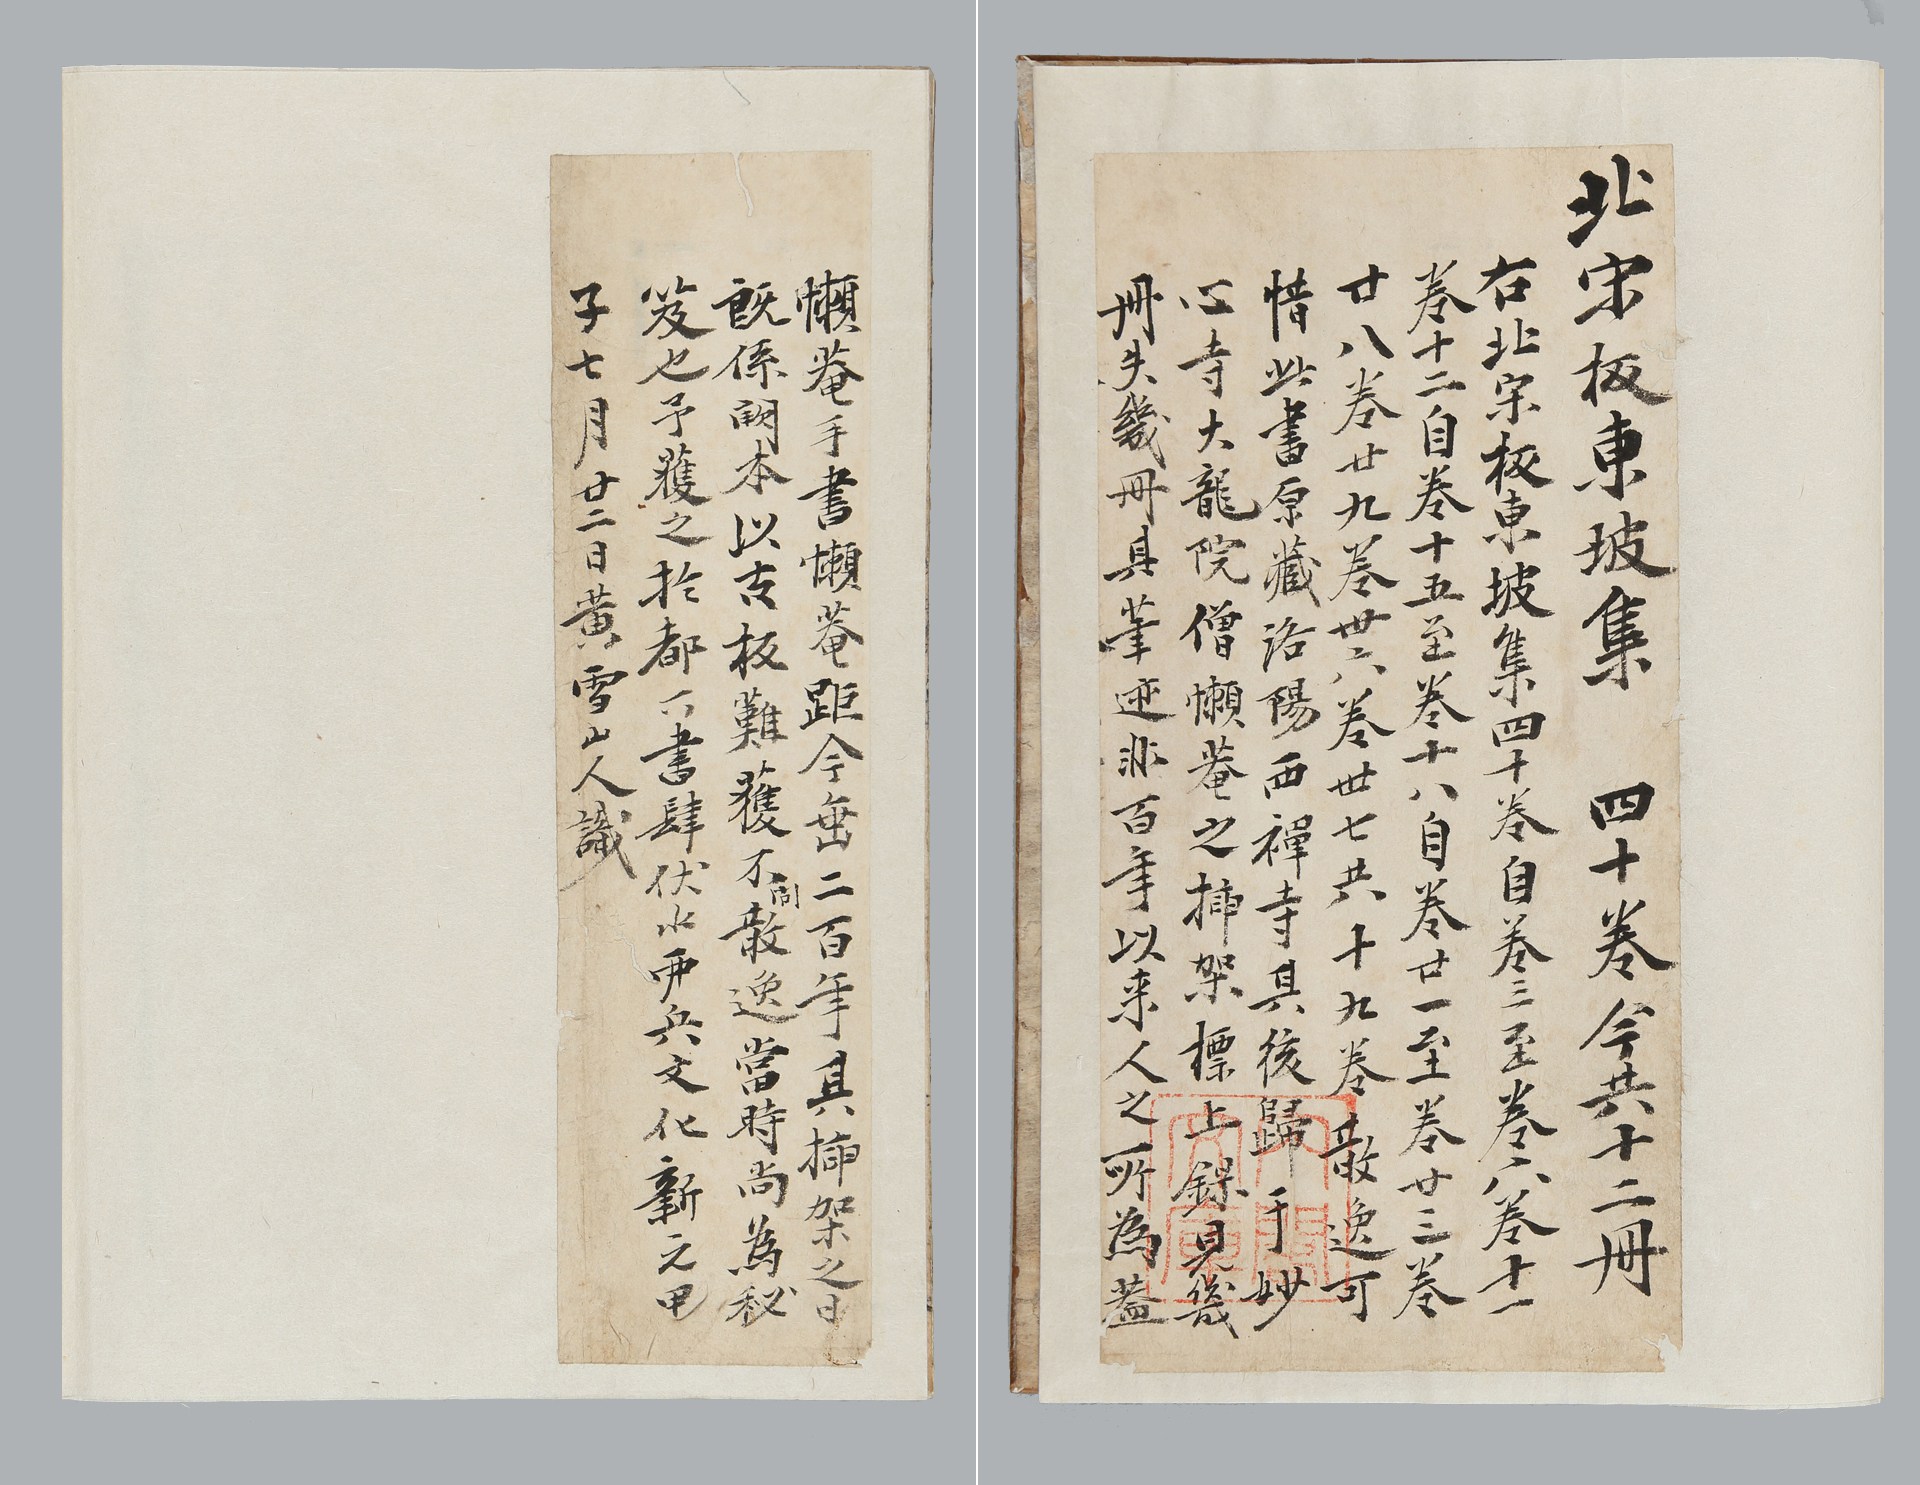 北宋板東坡集 四十卷今共十二冊
右北宋板東坡集四十卷自卷三至卷六卷十一
卷十二自卷十五至卷十八自卷廿一至卷廿三卷
廿八卷廿九卷卅六卷卅七共十九卷散逸可
惜此書原藏洛陽西禪寺其後歸于妙
心寺大龍院僧懶菴之揷架標上錄見幾
冊失幾冊其筆迹非百年以来人之所為蓋
懶菴手書懶菴距今垂二百年其揷架之日
既係闕本以古板難獲不問散逸當時尚為秘
笈也予獲之於都下書肆伏水
兵文化新元甲
子七月廿二日黄雪山人識
内閣
文庫